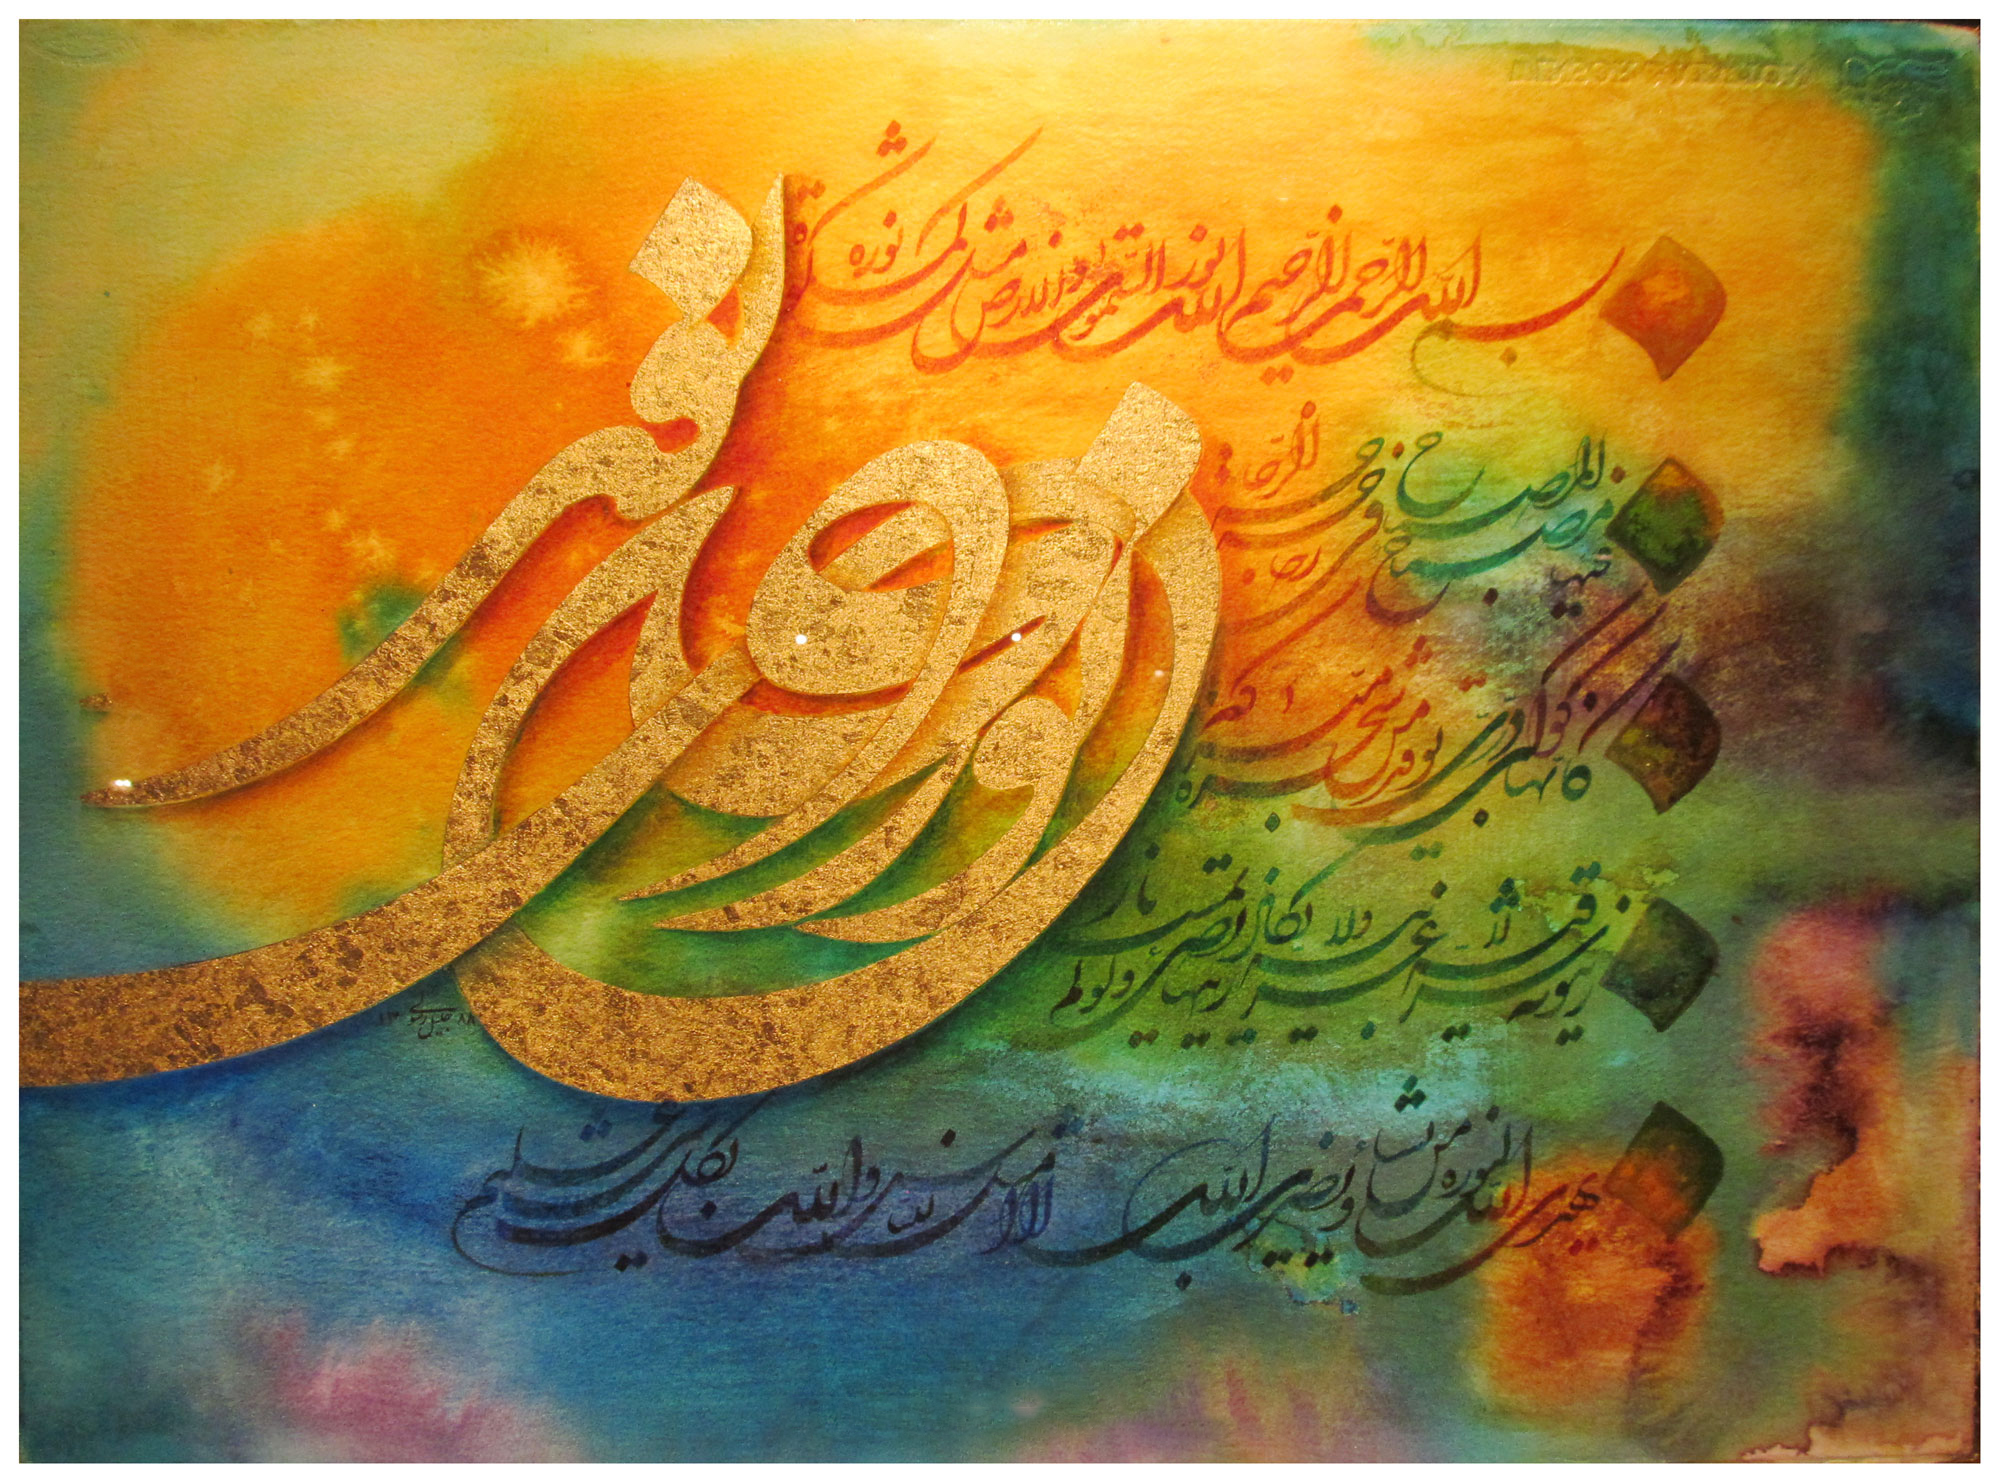 بسم الله الرحمن الرحیم الله نور السموات والارض مثل نوره کمشکاة
فیها مصباح المصباح فی زجاجة الزجاجة
کانها کوکب دری یوقد من شجرة مبارکة
زیتونة لا شرقیة ولا غربیة یکاد زیتها یضیء ولو لم تمسسه نار
یهدی الله لنوره من یشاء ویضرب الله الامثال للناس والله بکل شیء علیم
جلیل رسولی ۱۳۸۸